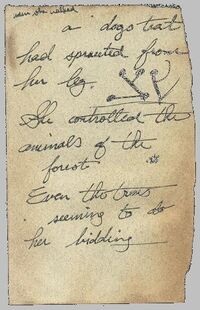 when she walked
a dogs tail
had sprouted from
her leg.
She controlled the
animals of the
forest.
Even the trees
seeming to do
her bidding